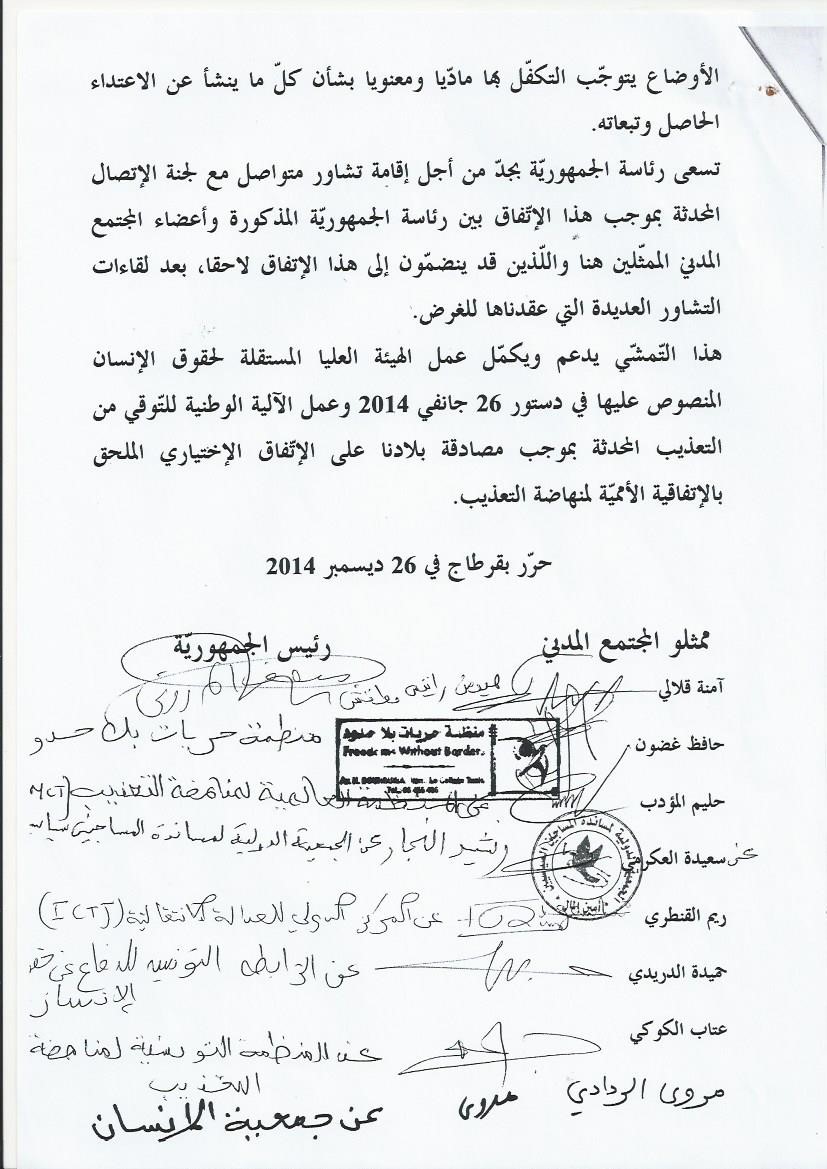 الأوضاع يتوجّب التكفّل بها مادّيا ومعنويا بشأن كلّ ما ينشأ عن الاعتداء
الحاصل وتبعاته.
تسعى رئاسة الجمهوريّة بجدّ من أجل إقامة تشاور متواصل مع لجنة الإتصال
المحدثة بموجب هذا الإتّفاق بين رئاسة الجمهوريّة المذكورة وأعضاء المجتمع
المدني الممثّلين هنا واللّذين قد ينضمّون إلى هذا الإتفاق لاحقا، بعد لقاءات
التشاور العديدة التي عقدناها للغرض.
هذا التّمشّي يدعم ويكمّل عمل الهيئة العليا المستقلة لحقوق الإنسان
المنصوص عليها في دستور 26 جانفي 2014 وعمل الآلية الوطنية للتّوقي من
التعذيب المحدثة بموجب مصادقة بلادنا على الإتّفاق الإختياري الملحق
بالإتفاقية الأمميّة لمنهاضة التعذيب.
حرّر بقرطاج في 26 ديسمبر 2014
ممثلو المجتمع المدني رئيس الجمهوريّة
آمنة قلالي
حافظ غضون منظمة حريات بلا حدو
منظمة حريات بلا حدود
Freedoms Without Borders
حليم المؤدب عن المنظمة العالمية لمناهضة التعذيب
عن سعيدة العكرمي رشيد النجار عن الجمعية الدولية لمساندة المساجين
أمين المال
ريم القنطري عن المركز الدولي للعدالة الانتقالية (ICTJ)
حميدة الدريدي عن الرابطة التونسية للدفاع عن حقو
الإنسان
عتاب الكوكي عن المنظمة التونسية لمناهضة
التعذيب
مروى الردادي مروى عن جمعية الإنسان